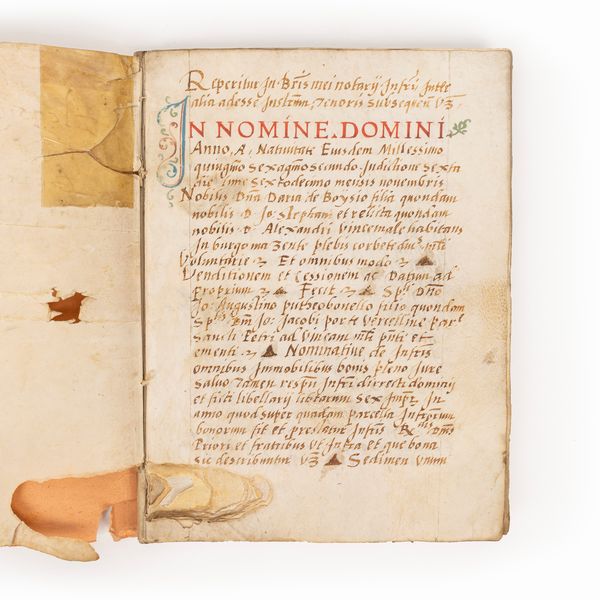 Reperitur In Bris mei notarij Infri Inter
alia adesse Instrum Tenoris subsequen Vz
IN NOMINE DOMINI
Anno, A, Nativitate Eiusdem Millessimo
quingmo sexagmo secundo Indictione sexta
die sextodecimo mensis novembris
Nobilis Dna Daria de Boysio filia quondam
nobilis D Jo stephani et relicta quondam
nobilis D Alexandri Vincemale habitans
In burgo plebis corbete
Voluntarie Et omnibus modo
Venditionem et Cessionem ac Datum ad
proprium Fecit Dno
Jo: Augustino puteobonello filio quondam
Dni Jo: Jacobi porte Vercelline par
Sancti Petri ad Vineam mli pnti et
ementi Nominative de Infris
omnibus Immobilibus bonis pleno Jure
salvo Tamen respu Infri directi dominij
et ficti libellarij librarum sex Impr In
anno quod super quadam parcella Infrprum
bonorum fit et prestatur Infris Dmis
Priori et fratribus Vt Infra et que bona
sic describuntur Vz Sedimen Unum